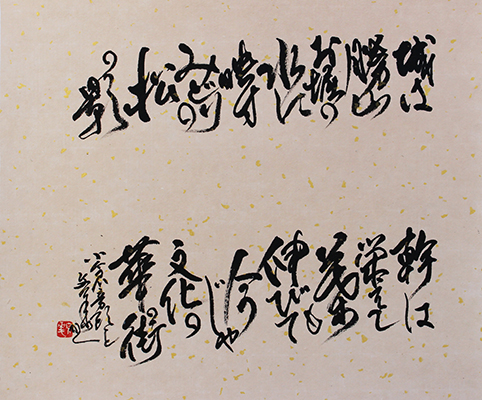 城は
勝山
お堀の
水に
映す
みどりの
松
の影
幹は
栄えて
伸びて
じゃ
文化の
華街